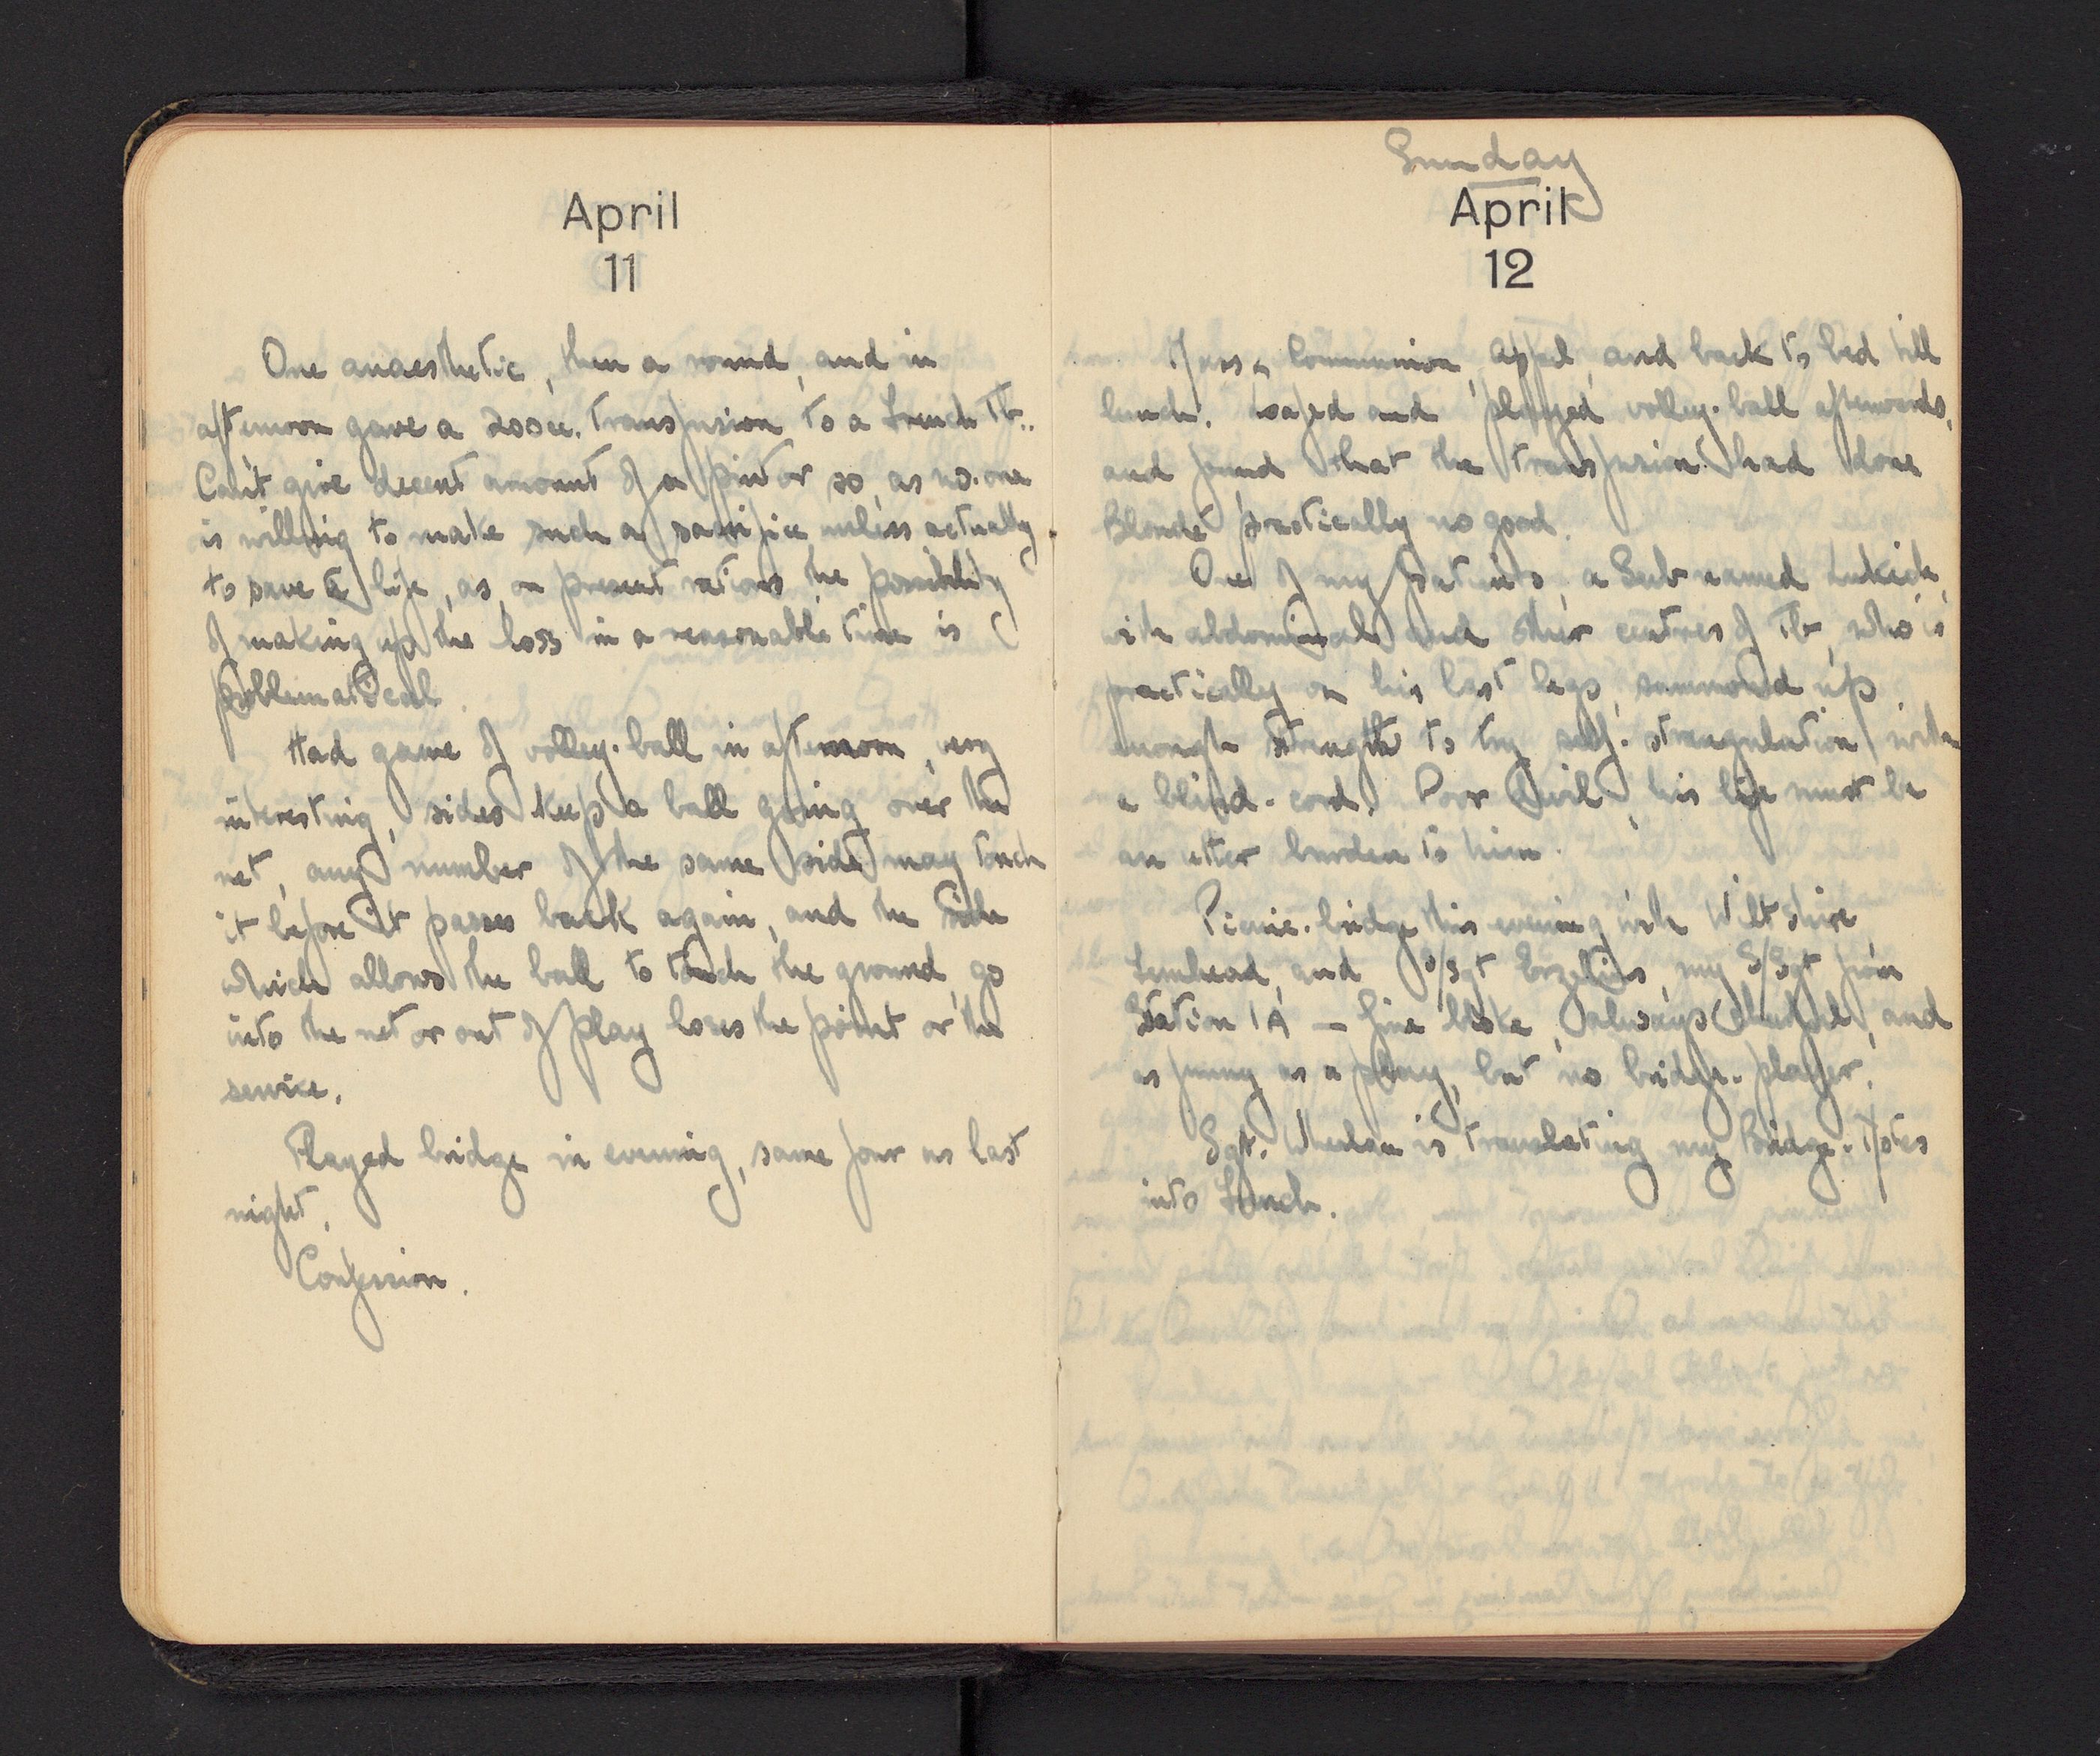 April
11
One anaesthetic, then a round, and in
afternoon gave a 200cc. transfusion to a French Tb..
Can't give decent amount of a pint or so, as no-one
is willing to make such a sacrifice unless actually
to save a life, as, on present rations, the possibility
of making up the loss in a reasonable time is
problematical.
Had game of volley-ball in afternoon, very
interesting, sides keep a ball going over the
net, any number of the same side may touch
it before it passes back again, and the side
which allows the ball to touch the ground, go
into the net or out of play loses the point or the
service.
Played bridge in evening, same four as last
night.
Confession.
Sunday
April
12
Mass & Communion, appel, and back to bed till
lunch. Loafed and played volley-ball afterwards,
and found that the transfusion had done
Blondet practically no good.
One of my patients, a Serb named
with abdominal and other centres of Tb, who is
practically on his last legs, summoned up
enough strength to try self-strangulation with
a blind-cord. Poor devil, his life must be
an utter burden to him.
Picnic-bridge this evening with Wiltshire,
and S/Sgt my S/Sgt from
Station 1A — fine bloke, always cheerful, and
as funny as a play, but no bridge-player.
Sgt. Whelan is translating my Bridge-Notes
into French.